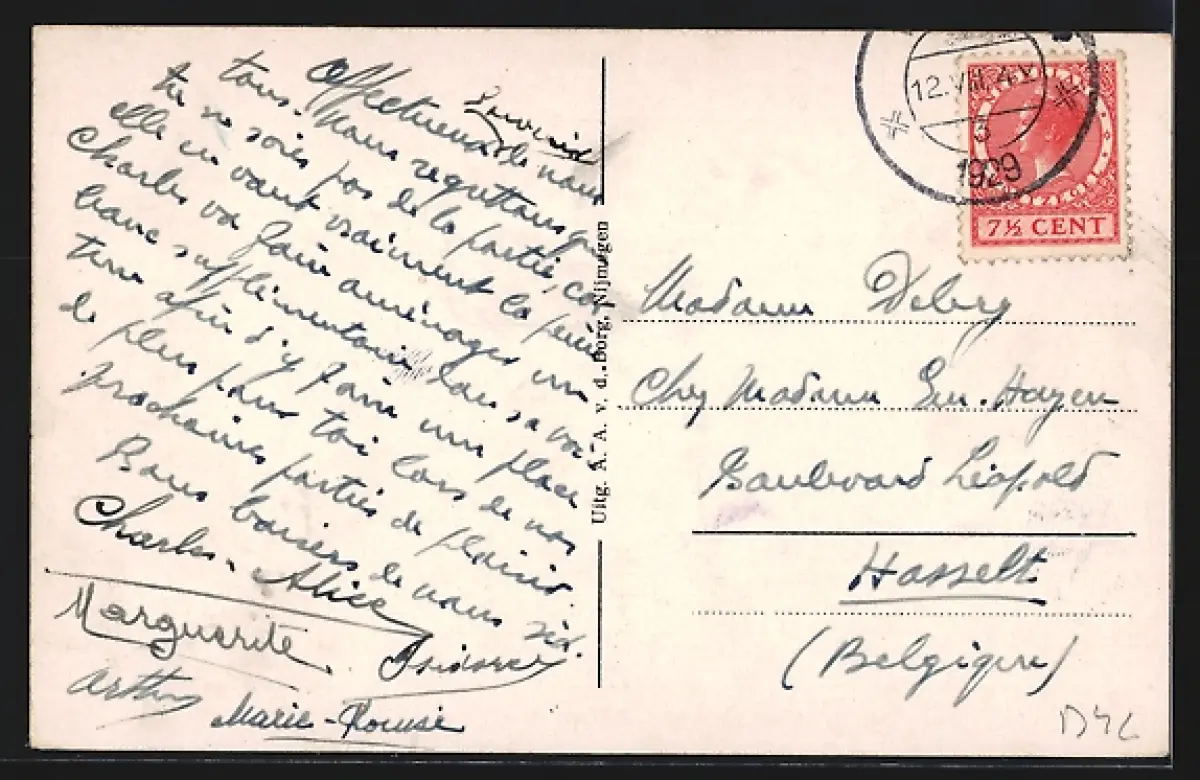 Affectueux souvenir de nous
tous. Nous regrettons que
tu ne sois pas de la partie, car
elle en vaut vraiment la peine
Charles va faire aménager un
banc supplémentaire dans sa voi
ture afin d'y faire une place
de plus pour toi lors de nos
prochaines parties de plaisir.
Bons baisers de nous six.
Charles. Alice
Marguerite. Isidore
Arthur
Marie-Louise
Uitg. A. A. v. d. Borg, Nijmegen
12.VIII.4V
1929
7½ CENT
Madame Debry
Chez Madame Gen. Hayen
Boulevard Léopold
Hasselt
(Belgique)